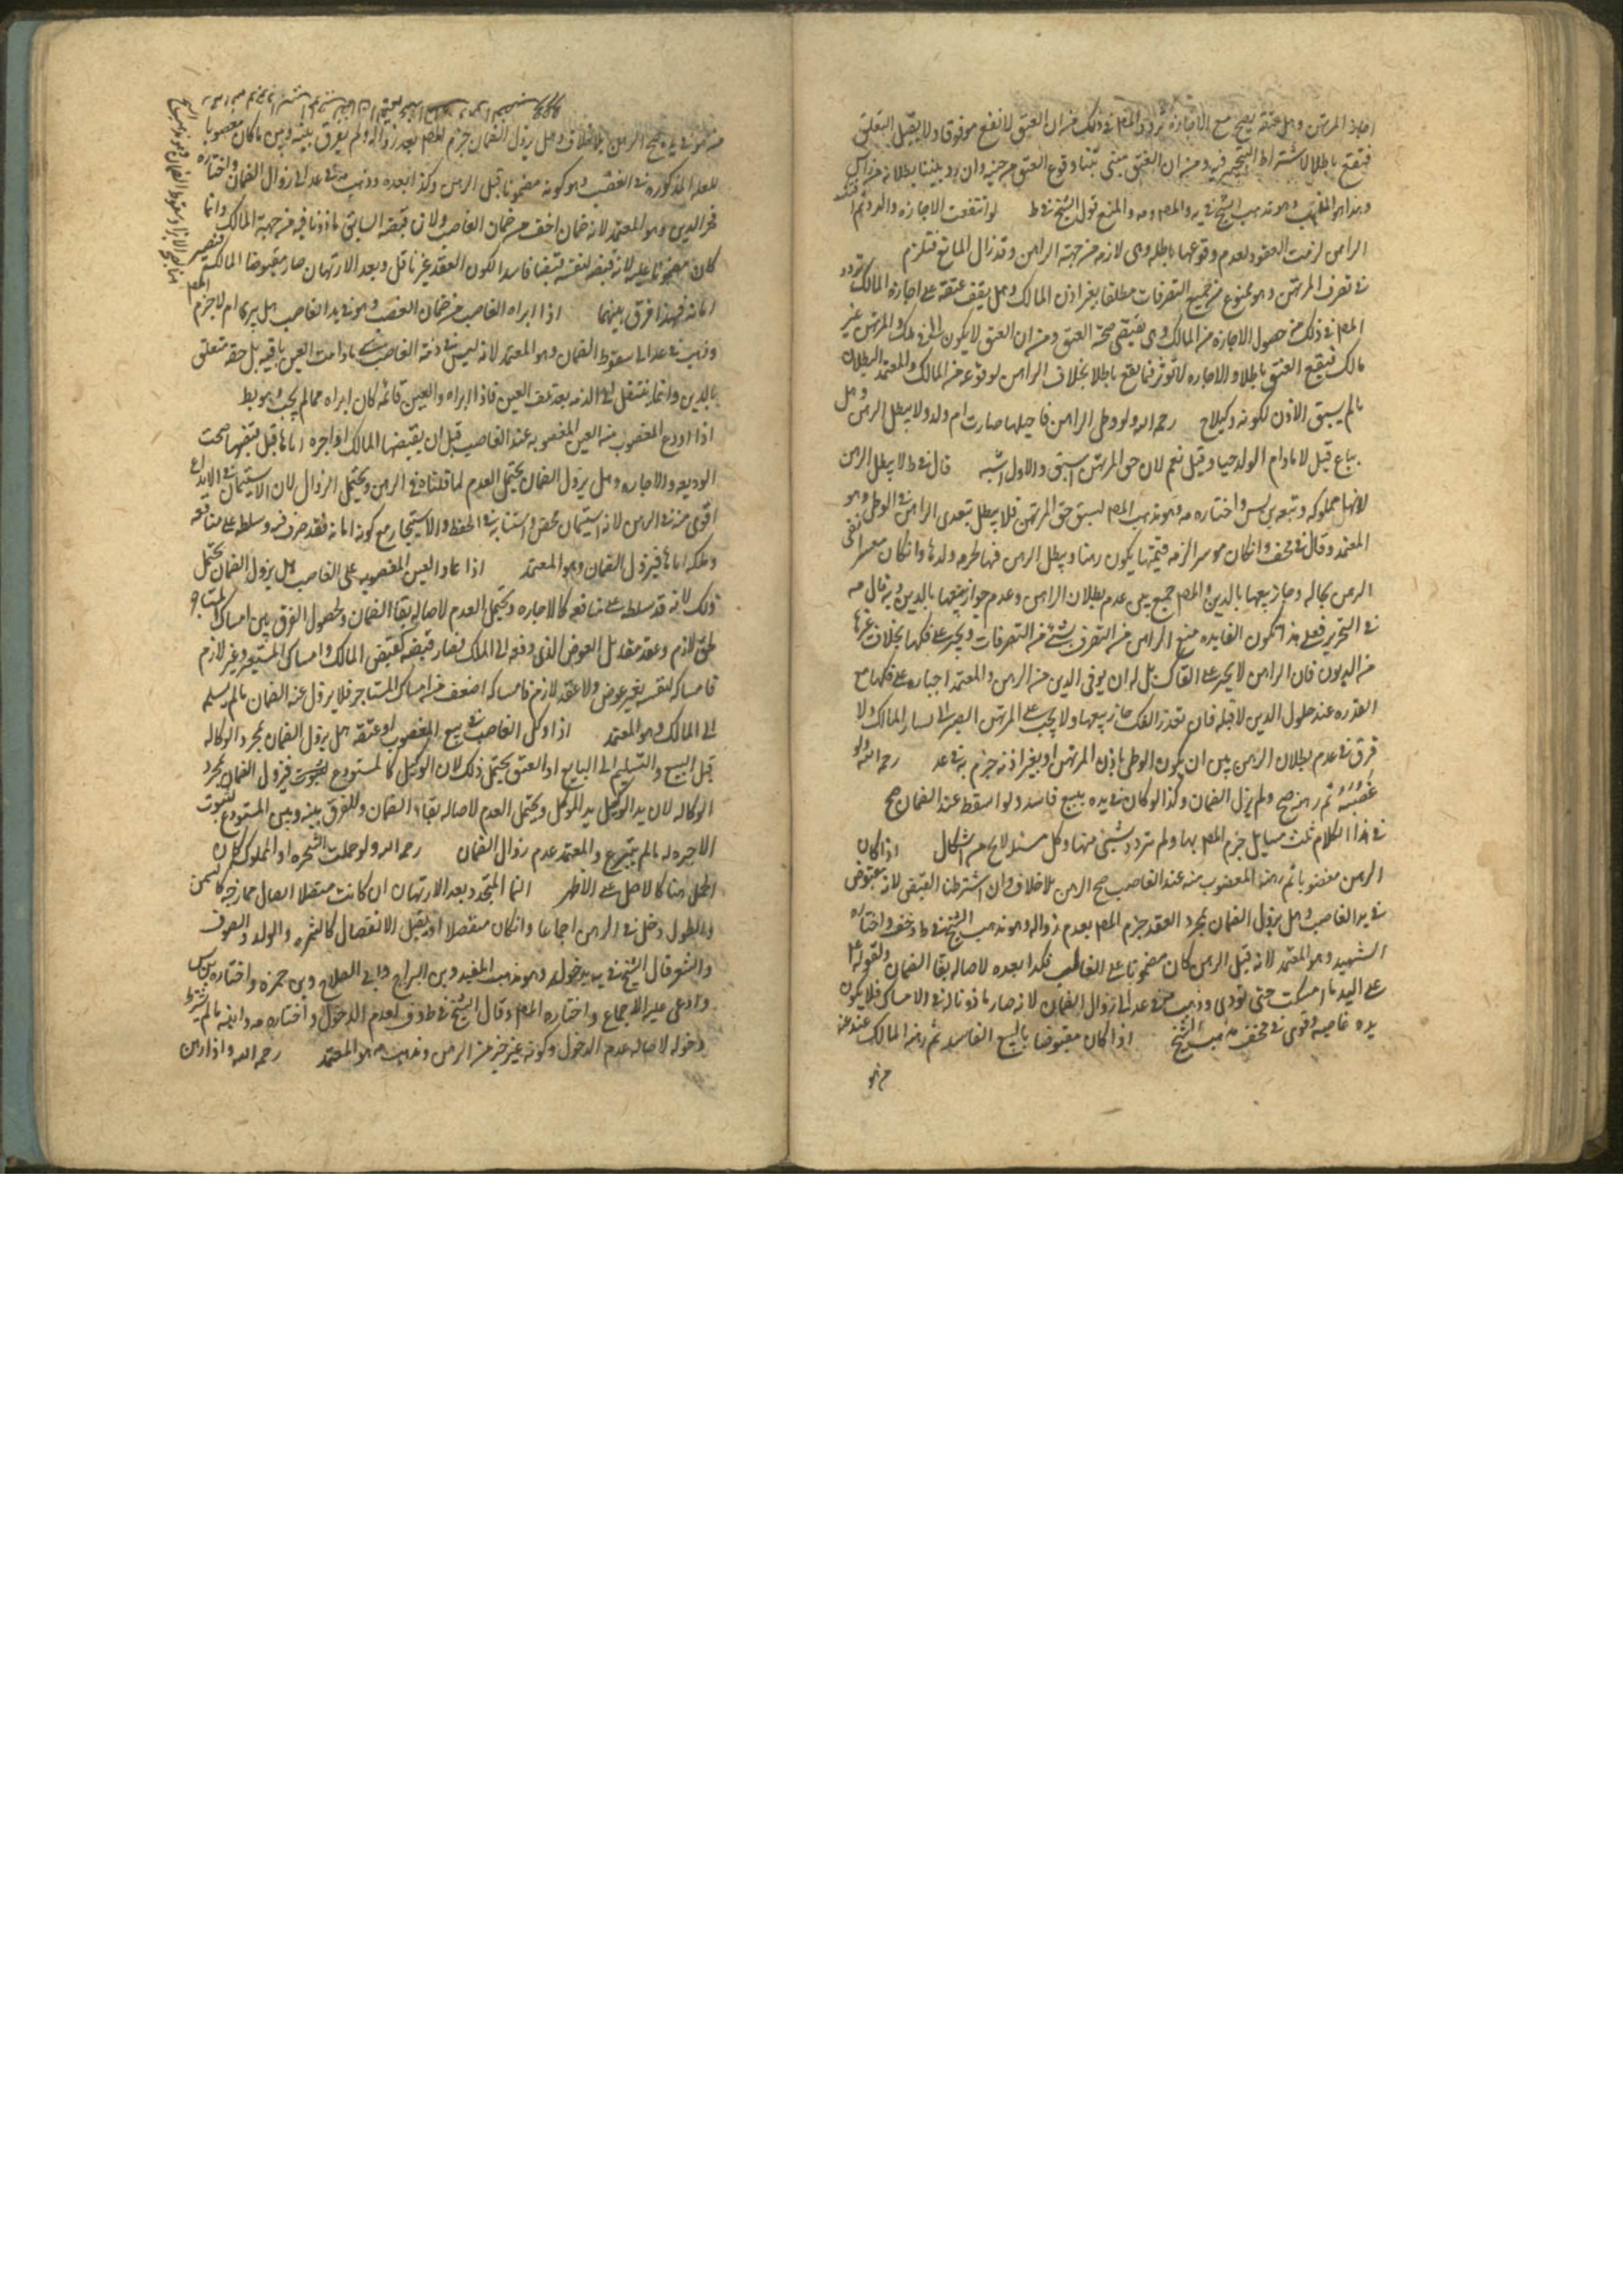 اجازة المرتهن وهل عتقه يصح مع الاجازة تردد المص في ذلك من ان العتق لا يقع موقوفا ولا يقبل التعليق
فيقع باطلا لاشتراط التنجيز فيه ومن ان العتق مبنى
وهذا هو المذهب وهو مذهب الشيخ في يه والمص ومه والمنع قول الشيخ في ط لو انتفت الاجازه
الراهن لزمت العقود لعدم وقوعها باطله وهى لازمه من جهة الراهن وقد زال المانع فتلزم
في تصرف المرتهن وهو ممنوع من جميع التصرفات مطلقا بغير اذن المالك وهل يقف عتقه على اجازة المالك تردد
المص في ذلك من حصول الاجازه من المالك وهى تقتضى صحة العتق ومن ان العتق لا يكون الا في ملك والمرتهن غير
مالك فيقع العتق باطلا والاجازه لا تؤثر فيما يقع باطلا بخلاف الراهن لوقوعه من المالك والمعتمد البطلان
مالم يسبق الاذن لكونه وكيلا ح رحمه الله ولو وطى الراهن فاحبلها صارت ام ولد ولا يبطل الرهن وهل
يباع قيل لا مادام الولد حيا وقيل نعم لان حق المرتهن اسبق والاول اشبه قال في ط لا يبطل الرهن
لانها مملوكه وتبعه بن س واختاره مه وهو مذهب المص لسبق حق المرتهن فلا يبطل بتعدى الراهن في الوطى وهو
المعتمد وقال في خف وان كان موسرا لزمه قيمتها يكون رهنا ويبطل الرهن فيها لحرمه ولدها وان كان معسرا بقى
الرهن بحاله وجاز بيعها بالدين والمص جمع بين عدم بطلان الراهن وعدم جواز بيعها بالدين وبه قال مه
في التحرير فعلى هذا تكون الفايده منع الراهن من التصرف بشئ من التصرفات ويجبر على فكها بخلاف غيرها
من الديون فان الراهن لا يجبر على الفكاك بل له ان يوفى الدين من الرهن والمعتمد اجباره على فكها مع
القدره عند حلول الدين لا قبله فان تعذر الفك جاز بيعها ولا يجب على المرتهن الصبر الى يسار المالك ولا
فرق في عدم بطلان الرهن بين ان يكون الوطى باذن المرتهن او بغير اذنه جزم به في عد رحمه الله ولو
غصبه ثم رهنه صح ولم يزل الضمان وكذا لو كان في يده ببيع فاسد ولو اسقط عنه الضمان صح
في هذا الكلام ثلث مسايل جزم المص بها ولم يتردد بشئ منها وكل مسئله لا تخ من اشكال اذا كان
الرهن مغصوبا ثم رهنه المغصوب منه عند الغاصب صح الرهن بلا خلاف وان اشترطنا القبض لانه مقبوض
في يد الغاصب وهل يزول الضمان بمجرد العقد جزم المص بعدم زواله وهو مذهب الشيخ في ط وخف واختاره
الشهيد وهو المعتمد لانه قبل الرهن كان مضمونا على الغاصب فكذا بعده لاصاله بقا الضمان ولقوله ع
على اليد ما اخذت حتى تودى وذهب مه في عد الى زوال الضمان لانه صار ماذونا له في الامساك فلا يكون
يده غاصبه وقوى في مختلف مذهب الشيخ اذا كان مقبوضا بالبيع الفاسد ثم رهنه المالك عند من
من هو
من هو في يده صح الرهن بلا خلاف وهل يزول الضمان جزم المص بعدم زواله ولم يفرق بينه وبين ما كان مغصوبا
للعله المذكوره في الغصب وهو كونه مضمونا قبل الرهن وكذا بعده وذهب مه في عد الى زوال الضمان واختاره
فخر الدين وهو المعتمد لانه ضمان اخف من ضمان الغاصب ولان قبضه السابق ماذونا فيه من جهة المالك وانما
كان مضمونا عليه لانه قبضه لنفسه قبضا فاسدا لكون العقد غير ناقل وبعد الارتهان صار مقبوضا للمالك فيصير
امانه فهذا فرق بينهما اذا ابراه الغاصب من ضمان الغصب وهو في يد الغاصب هل يبرى ام لا جزم المص
وذهب في عد الى سقوط الضمان وهو المعتمد لانه ليس في ذمة الغاصب شئ مادامت العين باقيه بل حقه متعلق
بالدين وانما ينتقل الى الذمه بعد تلف العين فاذا ابراه والعين قائمه كان ابراه مما لم يجب وهو بط
اذا اودع المغصوب منه العين المغصوبه عند الغاصب قبل ان يقبضها المالك او اجره اياها قبل قبضها صحت
الوديعه والاجاره وهل يزول الضمان يحتمل العدم لما قلناه في الرهن ويحتمل الزوال لان الاستيمان في الايداع
اقوى منه في الرهن لانه استيمان محض واستنابه في الحفظ والاستيجار مع كونه امانه فقد صرف فيه وسلطه على منافعه
وملكه اياها فيزول الضمان وهو المعتمد اذا عاد العين المغصوبه على الغاصب هل يزول الضمان يحتمل
ذلك لانه قد سلطه على منافعه كالاجاره ويحتمل العدم لاصاله بقا الضمان ولحصول الفرق بين امساك المستاجر
لازم وعقد مقابل العوض الذى دفعه الى المالك فصار قبضه كقبض المالك وامساك المستعير غير لازم
فامساكه لنفسه بغير عوض ولا عقد لازم فامساكه اضعف من امساك المستاجر فلا يزول عنه الضمان مالم يسلمه
الى المالك وهو المعتمد اذا وكل الغاصب في بيع المغصوب او عتقه هل يزول الضمان بمجرد الوكاله
قبل البيع والتسليم الى البايع او العتق يحتمل ذلك لان الوكيل كالمستودع فيزول الضمان بمجرد
الوكاله لان يد الوكيل يد الموكل ويحتمل العدم لاصاله بقاء الضمان وللفرق بينه وبين المستودع لثبوت
الاجره له مالم يتبرع والمعتمد عدم زوال الضمان رحمه الله ولو حملت الشجره او المملوكه كان
الحمل رهنا كالاصل على الاظهر النما المتجدد بعد الارتهان ان كانت متصلا اتصال ممازجه كالسمن
والطول دخل في الرهن اجماعا وان كان منفصلا او يقبل الانفصال كالثمره والولد والصوف
والشعر قال الشيخ في يه يدخوله وهو مذهب المفيد وبن البراج وابى الصلاح وبن حمزه واختاره بن س
وادعى عليه الاجماع واختاره المص وقال الشيخ في ط وخف بعدم الدخول واختاره مه وابنه مالم يشترط
دخوله لاصاله عدم الدخول وكونه غير جزء من الرهن ومذهب مه هو المعتمد رحمه الله واذا رهن